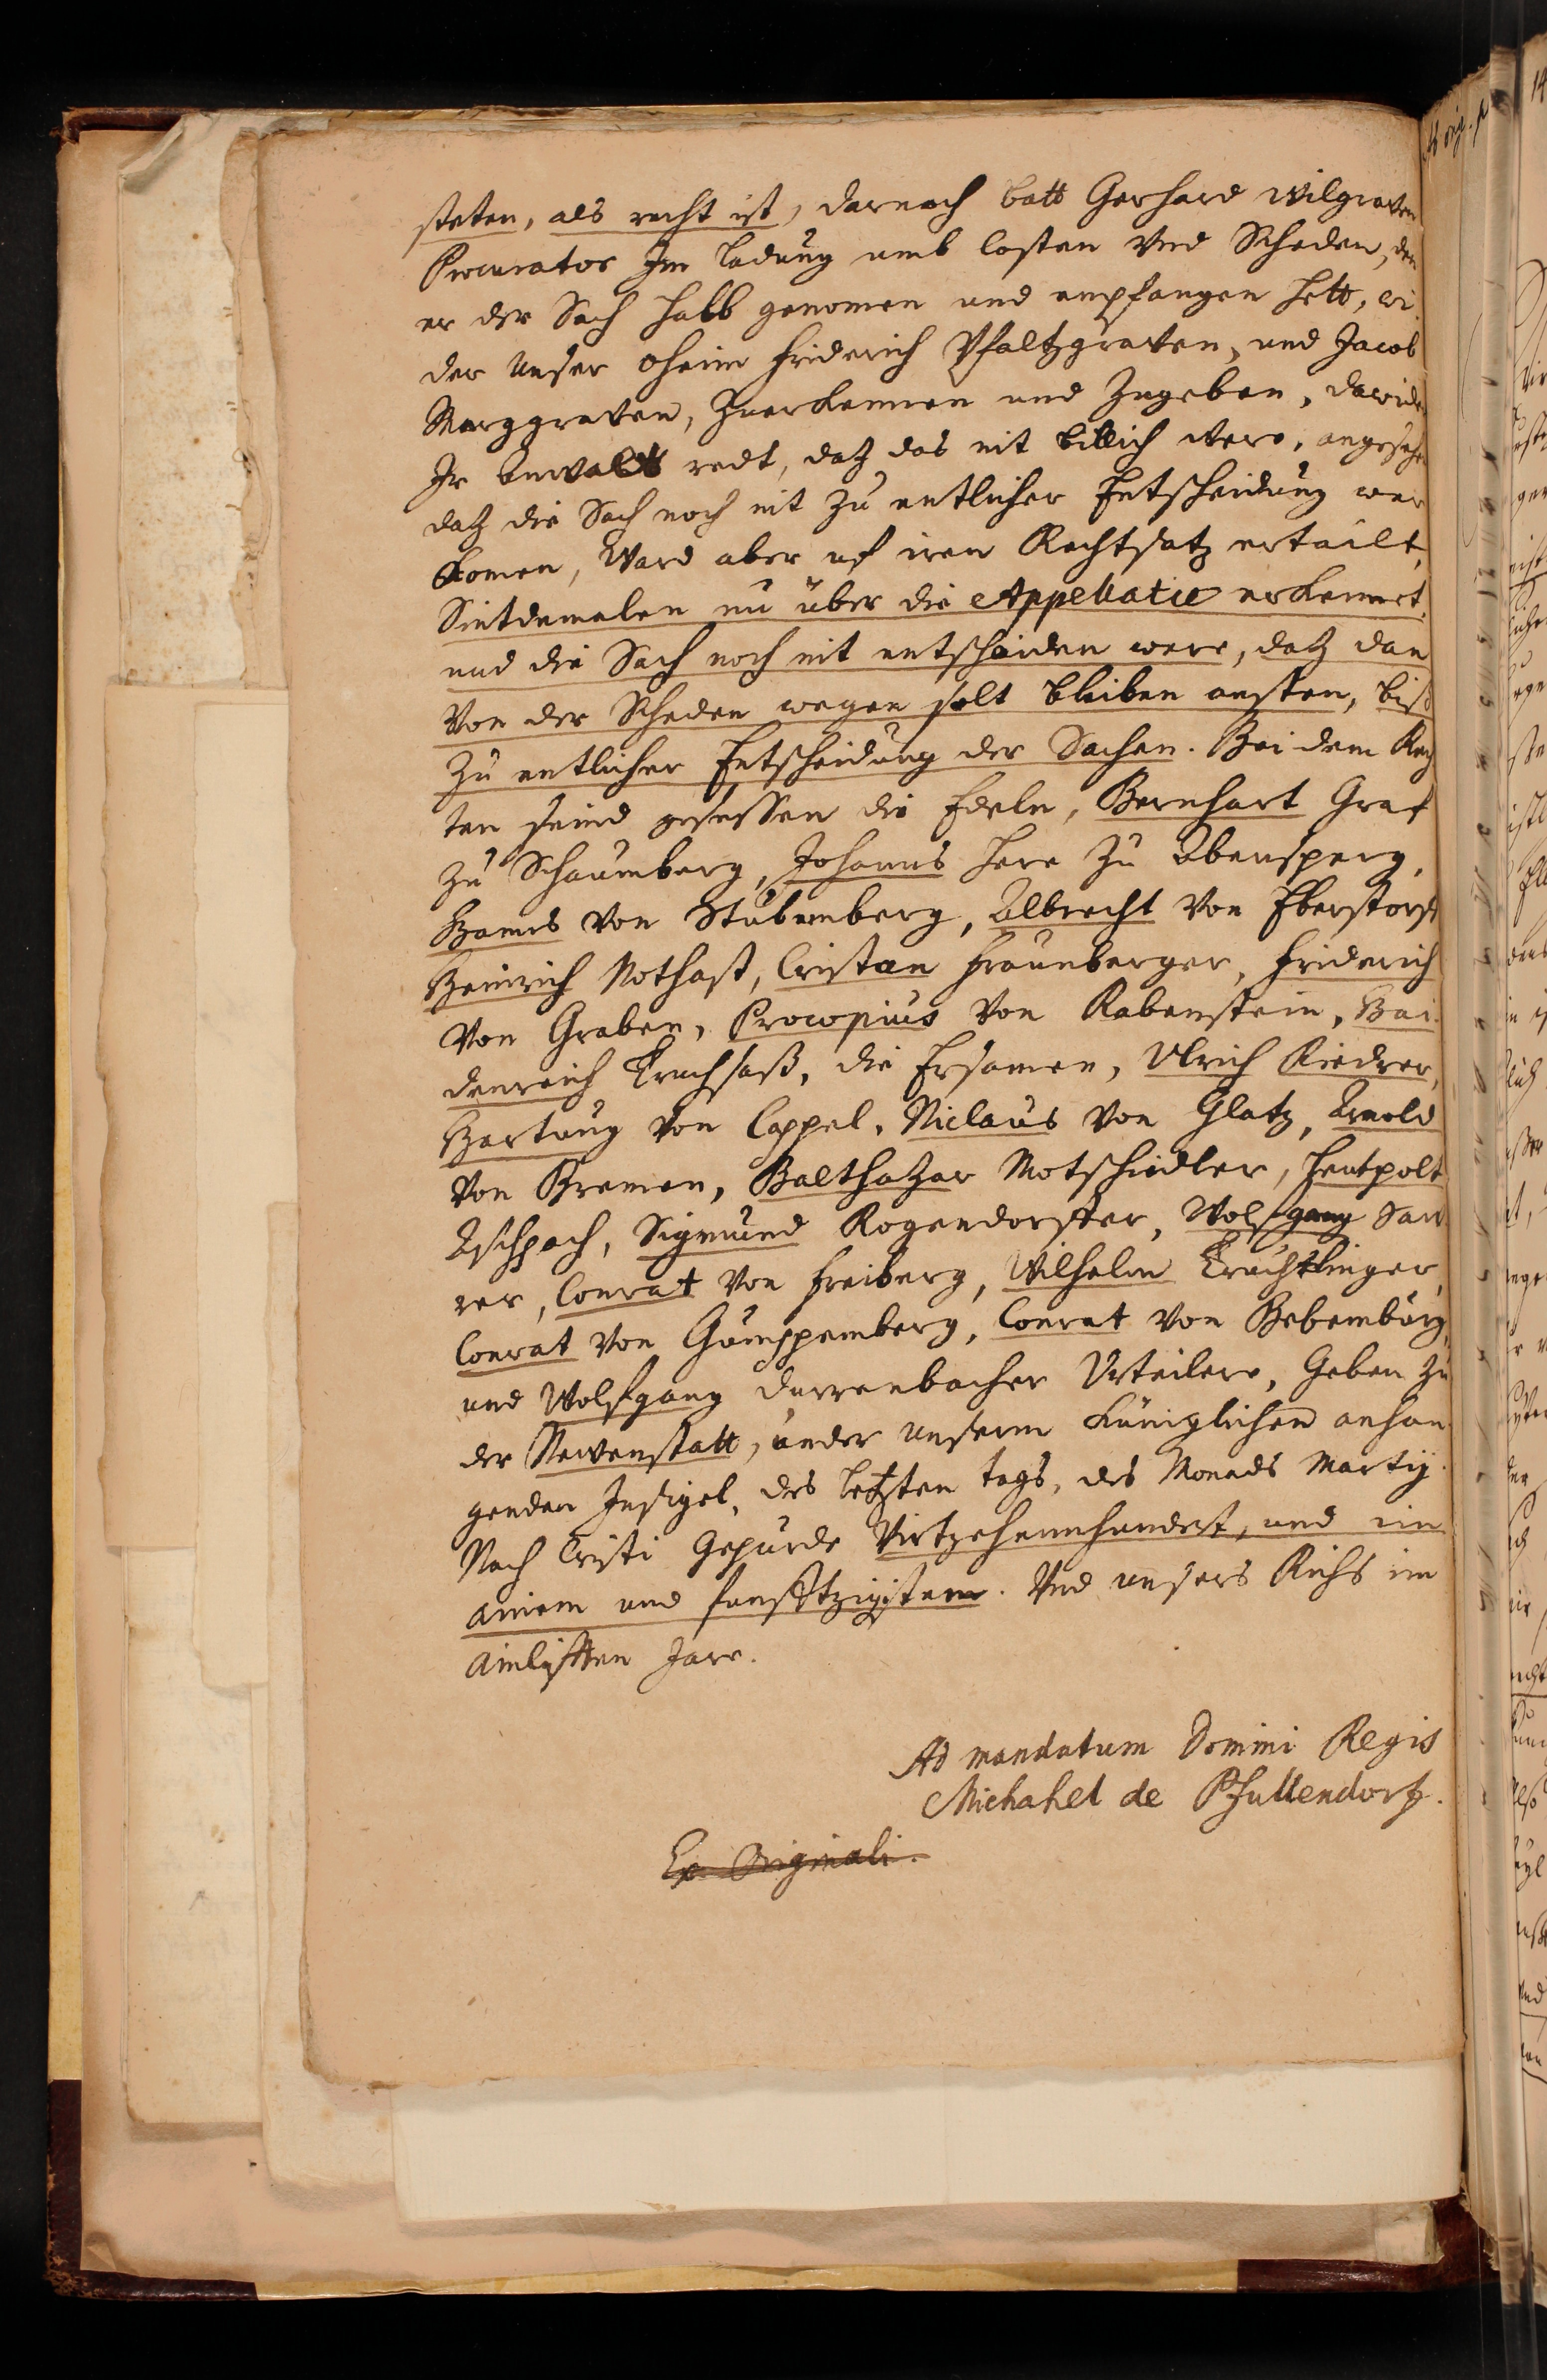 steten, als recht ist, darnach batt Gerhard Wilgraven
Procurator Im Ladung umb costen Vnd Scheden, den
er der Sach halb genomen und empfangen hett, wi
der Unser oheim Friderich Pfaltzgraven, und Jacob
Marggraven, Zuerkennen und Zugeben, dawider
Ir Anwaldt redt, datz das nit billich were, angesehen
datz die Sach noch nit zu entlicher Entscheidung wer
komen, Ward aber uf iren Rechtsatz ertailt,
Sintdemalen nu über die Appellacie erkennet,
und die Sach noch nit entschaiden were, datz dan
Von der Scheden wegen solt bleiben ansten, biß
Zu entlicher Entscheidung der Sachen. Bei dem Rech
ten seind gesessen die Edeln, Bernhart Graf
zu Schaumberg, Johanns Herr zu Abensperg,
Hanns von Stubemberg, Albrecht von Eberstorf
Heinrich Nothaft, Cristan Fraunberger, Friderich
Von Graben, Procopius von Rabenstein, Hai
denreich Truchsaß, die Ersamen, Ulrich Riedrer,
Hartung von Cappel, Niclaus von Glatz, Arnold
Von Bremen, Balthazar Motschidler,
Aschpach, Sigmund Rogendorffer, Wolfgang Saw
rer, Conrat von Freiberg, Wilhelm Truchtlinger,
Conrat von Gumppemberg, Conrat von Bebemburg,
und Wolfgang Durrenbacher Urteilere, Geben zu
der Newenstatt, under unserm Küniglichem anhan
genden Insigel, des letzten tags, des Monads Martij.
Nach Cristi Gepurde Virtzehennhundert, und im
ainem und funfftzigistem. Und unsers Richs im
ainlifften Jare.
Ad mandatum Domini Regis
Michahel de Pfullendorf.
Ex Originali.